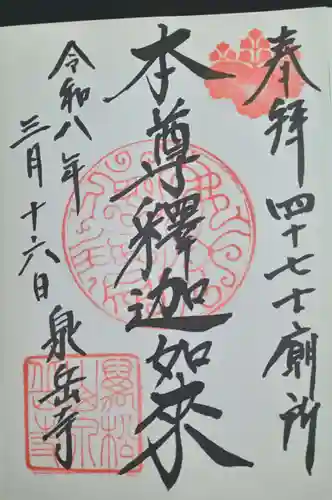 奉拝 四十七士廟所
本尊釋迦如来
令和八年
三月十六日 泉岳寺